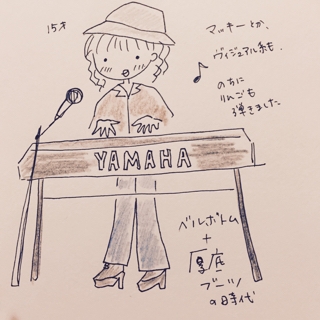 15才
マッキーとか、
ヴィジュアル系も、
のちに
りんごも
弾きました
YAMAHA
ベルボトム
+
厚底
ブーツ
の時代